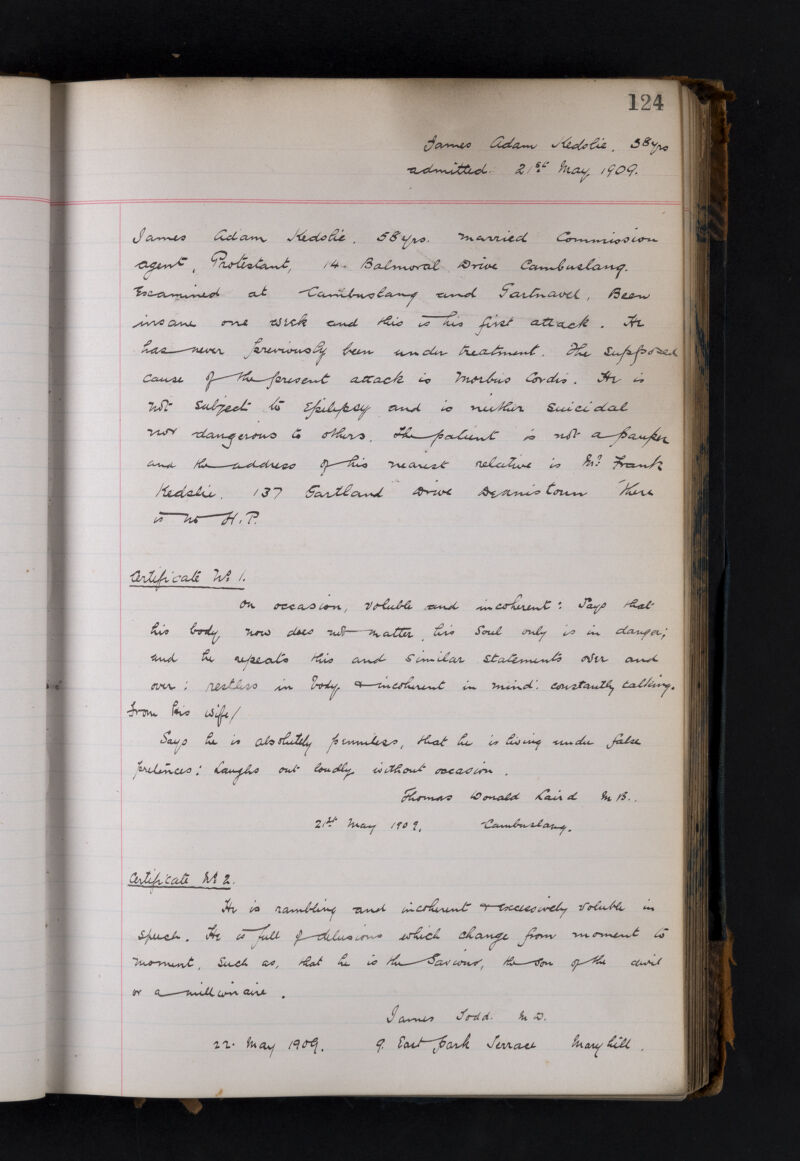 124
James Adam Kedslie. 58yrs
admitted. 21st May 1909.
James Adam Kedslie. 58yrs. married Commission
agent, Protestant, 14 Balmoral Drive Cambuslang.
Examined at Cambuslang and Gartnavel. Been
insane one week and this is his first attack. He
has never previously been under treatment. The supposed
cause of the present attack is Morbus Cordis. He is
not subject to Epilepsy and is neither suicidal
nor dangerous to others. The patient is not a pauper
and the address of his nearest relative is Mr Frank
Kedslie. 137 Gartland Drive Dennistoun There
is no H.P.
Certificate No 1.
On occasion, voluble and incoherent: Says that
his body now does not matter, his Soul only is in danger;
and he repeats this and similar statements over and
over; restless in body & incoherent in mind: constantly talking.
From his wife/
Says he is absolutely penniless, that he is living under false
pretences; Laughs out loudly without occasion.
Thomas Donald Laird M.B.
21st May 1909. Cambuslang.
Certificate No 2.
He is rambling and incoherent & excessively voluble in
speech. He is full of delusions which change from moment to
moment, such as, that he is the Saviour, the son of the devil
or a millionaire.
James Todd. M.D.
22. May 1909. 9. East Park Terrace Maryhill.